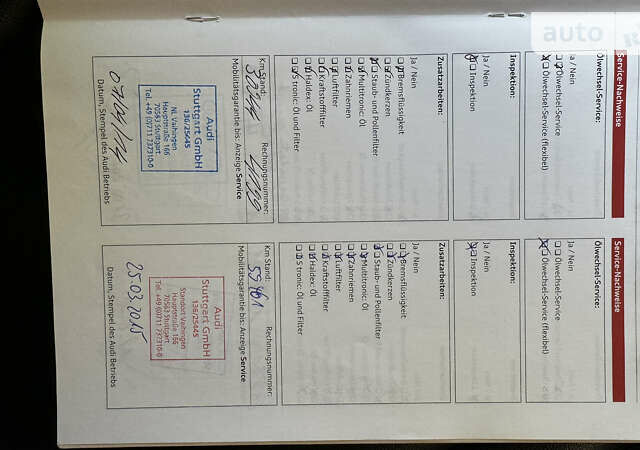 auto
Service-Nachweise
Ölwechsel-Service:
Ja / Nein
Ölwechsel-Service
Ölwechsel-Service (flexibel)
Inspektion:
Ja / Nein
Inspektion
Zusatzarbeiten:
Ja / Nein
Bremsflüssigkeit
Zündkerzen
Staub- und Pollenfilter
Multitronic Öl
Zahnriemen
Luftfilter
Kraftstofffilter
Haldex Öl
S tronic: Öl und Filter
Km Stand:
Rechnungsnummer:
Mobilitätsgarantie bis: Anzeige Service
Audi
Stuttgart GmbH
136/25645
NL Vaihingen
Hauptstraße 166
70563 Stuttgart
Tel. +49 (0)711 737310-0
Datum, Stempel des Audi Betriebs
Service-Nachweise
Ölwechsel-Service:
Ja / Nein
Ölwechsel-Service
Ölwechsel-Service (flexibel)
Inspektion:
Ja / Nein
Inspektion
Zusatzarbeiten:
Ja / Nein
Bremsflüssigkeit
Zündkerzen
Staub- und Pollenfilter
Multitronic Öl
Zahnriemen
Luftfilter
Kraftstofffilter
Haldex Öl
S tronic: Öl und Filter
Km Stand:
Rechnungsnummer:
55461
Mobilitätsgarantie bis: Anzeige Service
Audi
Stuttgart GmbH
136/25645
Standort Vaihingen
Hauptstraße 166
70563 Stuttgart
Tel. +49 (0)711 737310-0
25.03.2015
Datum, Stempel des Audi Betriebs